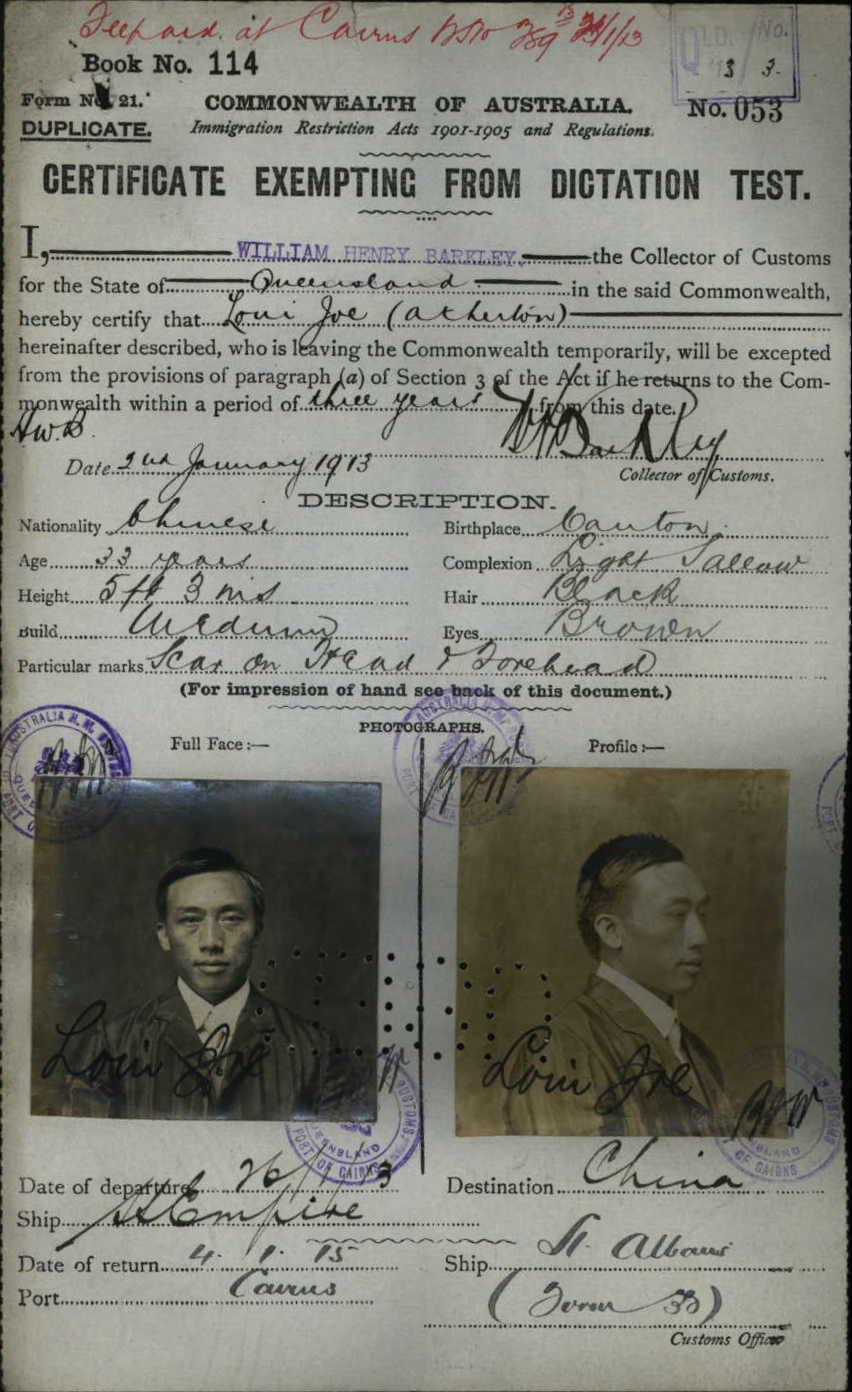 Fee paid. at Cairns
QLD. No.
Book No. 114
3 3.
Form No. 21.
COMMONWEALTH OF AUSTRALIA.
No. 053
DUPLICATE.
Immigration Restriction Acts 1901-1905 and Regulations.
CERTIFICATE EXEMPTING FROM DICTATION TEST.
I, WILLIAM HENRY BARKLEY, the Collector of Customs
for the State of Queensland in the said Commonwealth,
hereby certify that Loui Joe (Atherton)
hereinafter described, who is leaving the Commonwealth temporarily, will be excepted
from the provisions of paragraph (a) of Section 3 of the Act if he returns to the Com-
monwealth within a period of three years from this date.
W.H.Barkley
Date 2nd January 1913
Collector of Customs.
DESCRIPTION.
Nationality Chinese
Birthplace Canton
Age 33 years
Complexion Light Sallow
Height 5ft 3 ins
Hair Black
Build Medium
Eyes Brown
Particular marks Scar on Head & Forehead
(For impression of hand see back of this document.)
PHOTOGRAPHS.
Full Face :—
Profile :—
Loui Joe
Loui Joe
PORT OF CAIRNS
Date of departure 26/1/13
Destination China
Ship SS Empire
Date of return 4. 1. 15
Ship St. Albans
Port Cairns
(Form 33)
Customs Officer